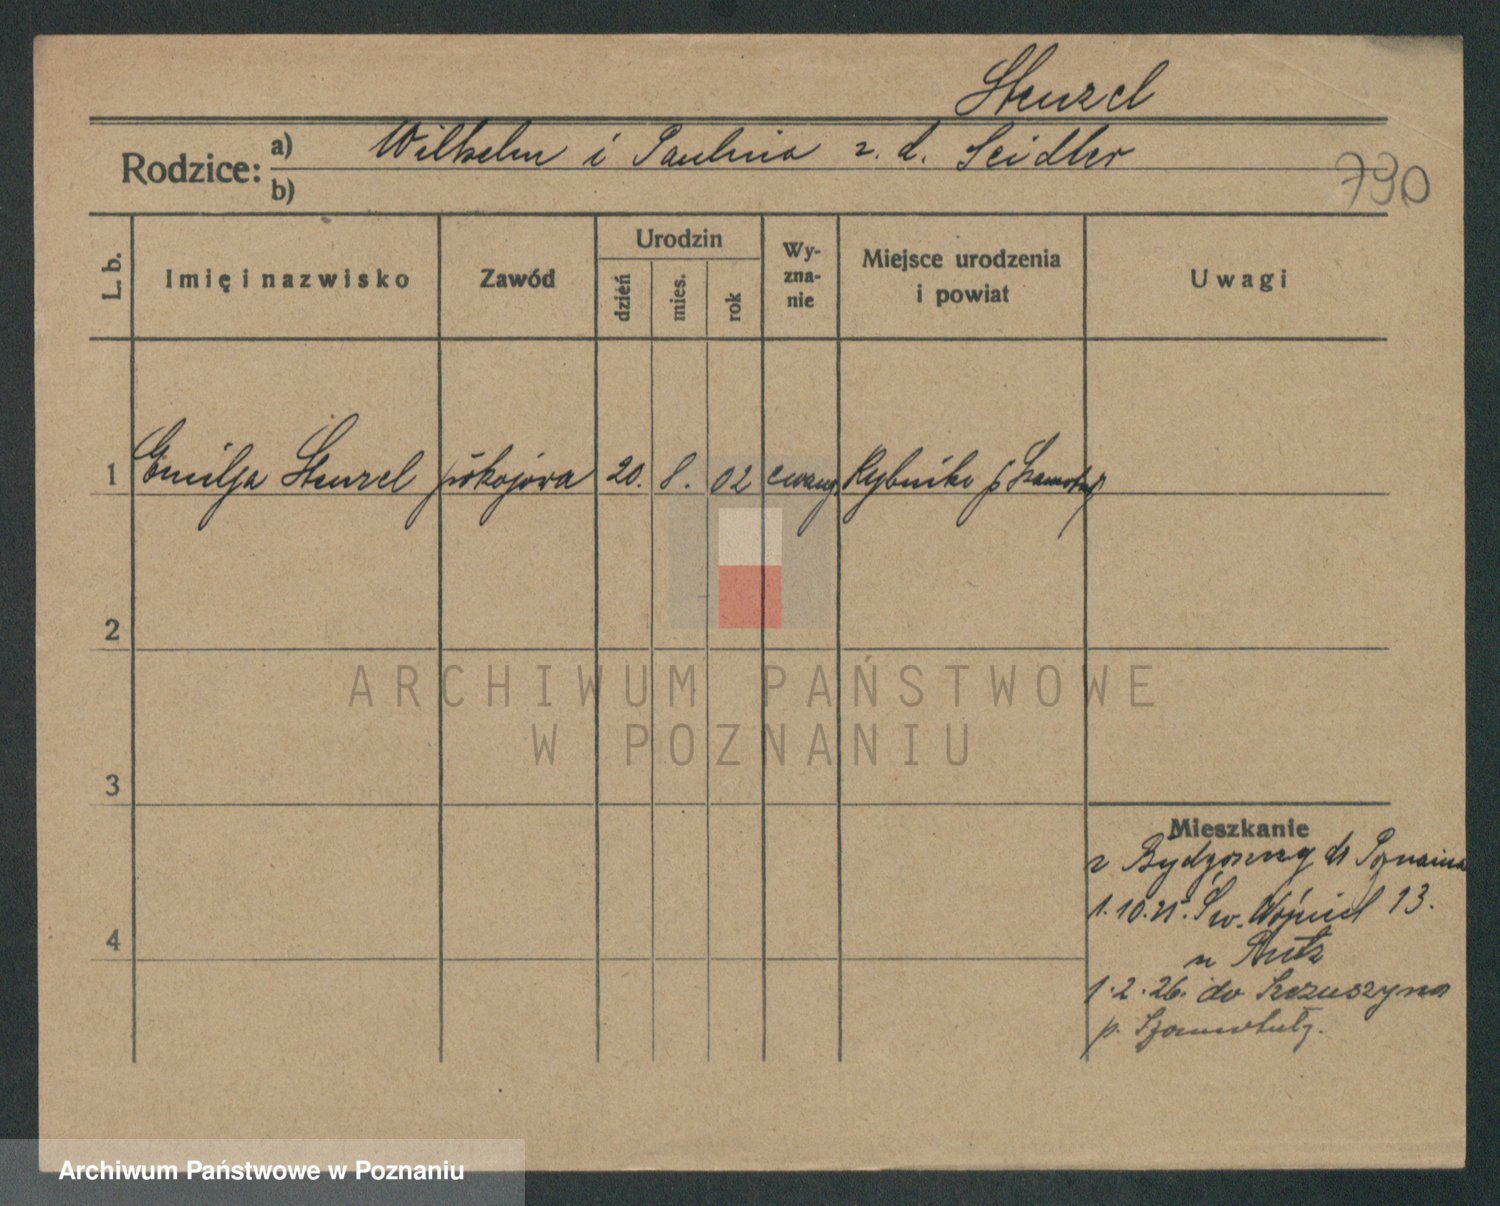 Stenzel
Rodzice: a) Wilhelm i Paulina z. d. Seidler
b)
790
L. b.
Imię i nazwisko
Zawód
Urodzin
dzień
mies.
rok
Wy-
zna-
nie
Miejsce urodzenia
i powiat
Uwagi
1 Emilja Stenzel pokojowa 20. 8. 02 ewang. p. Szamotuły
2
3
4
Mieszkanie
z Bydgoszczy do Poznania
1.10.25. Św. Wojciech 13.
1.2.26. do
p. Szamotuły.
ARCHIWUM PAŃSTWOWE
W POZNANIU
Archiwum Państwowe w Poznaniu